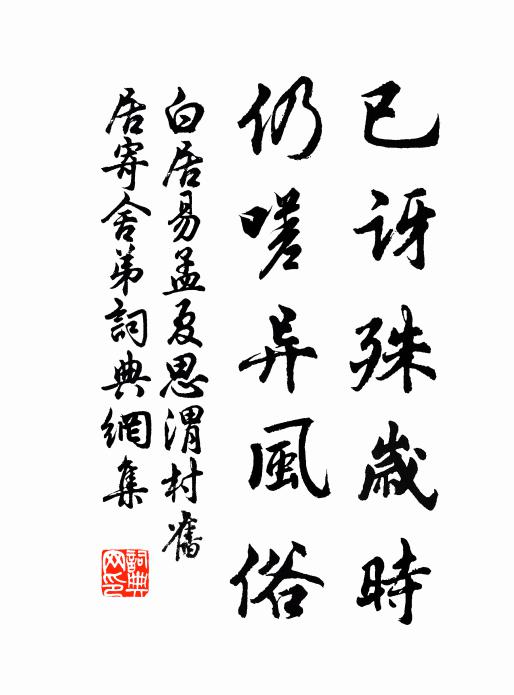 已訝殊歲時
仍嗟异風俗
白居易孟夏思渭村舊
居寄舍弟詞典網集
詞典網印